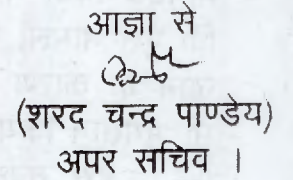 आज्ञा से
(शरद चन्द्र पाण्डेय)
अपर सचिव ।